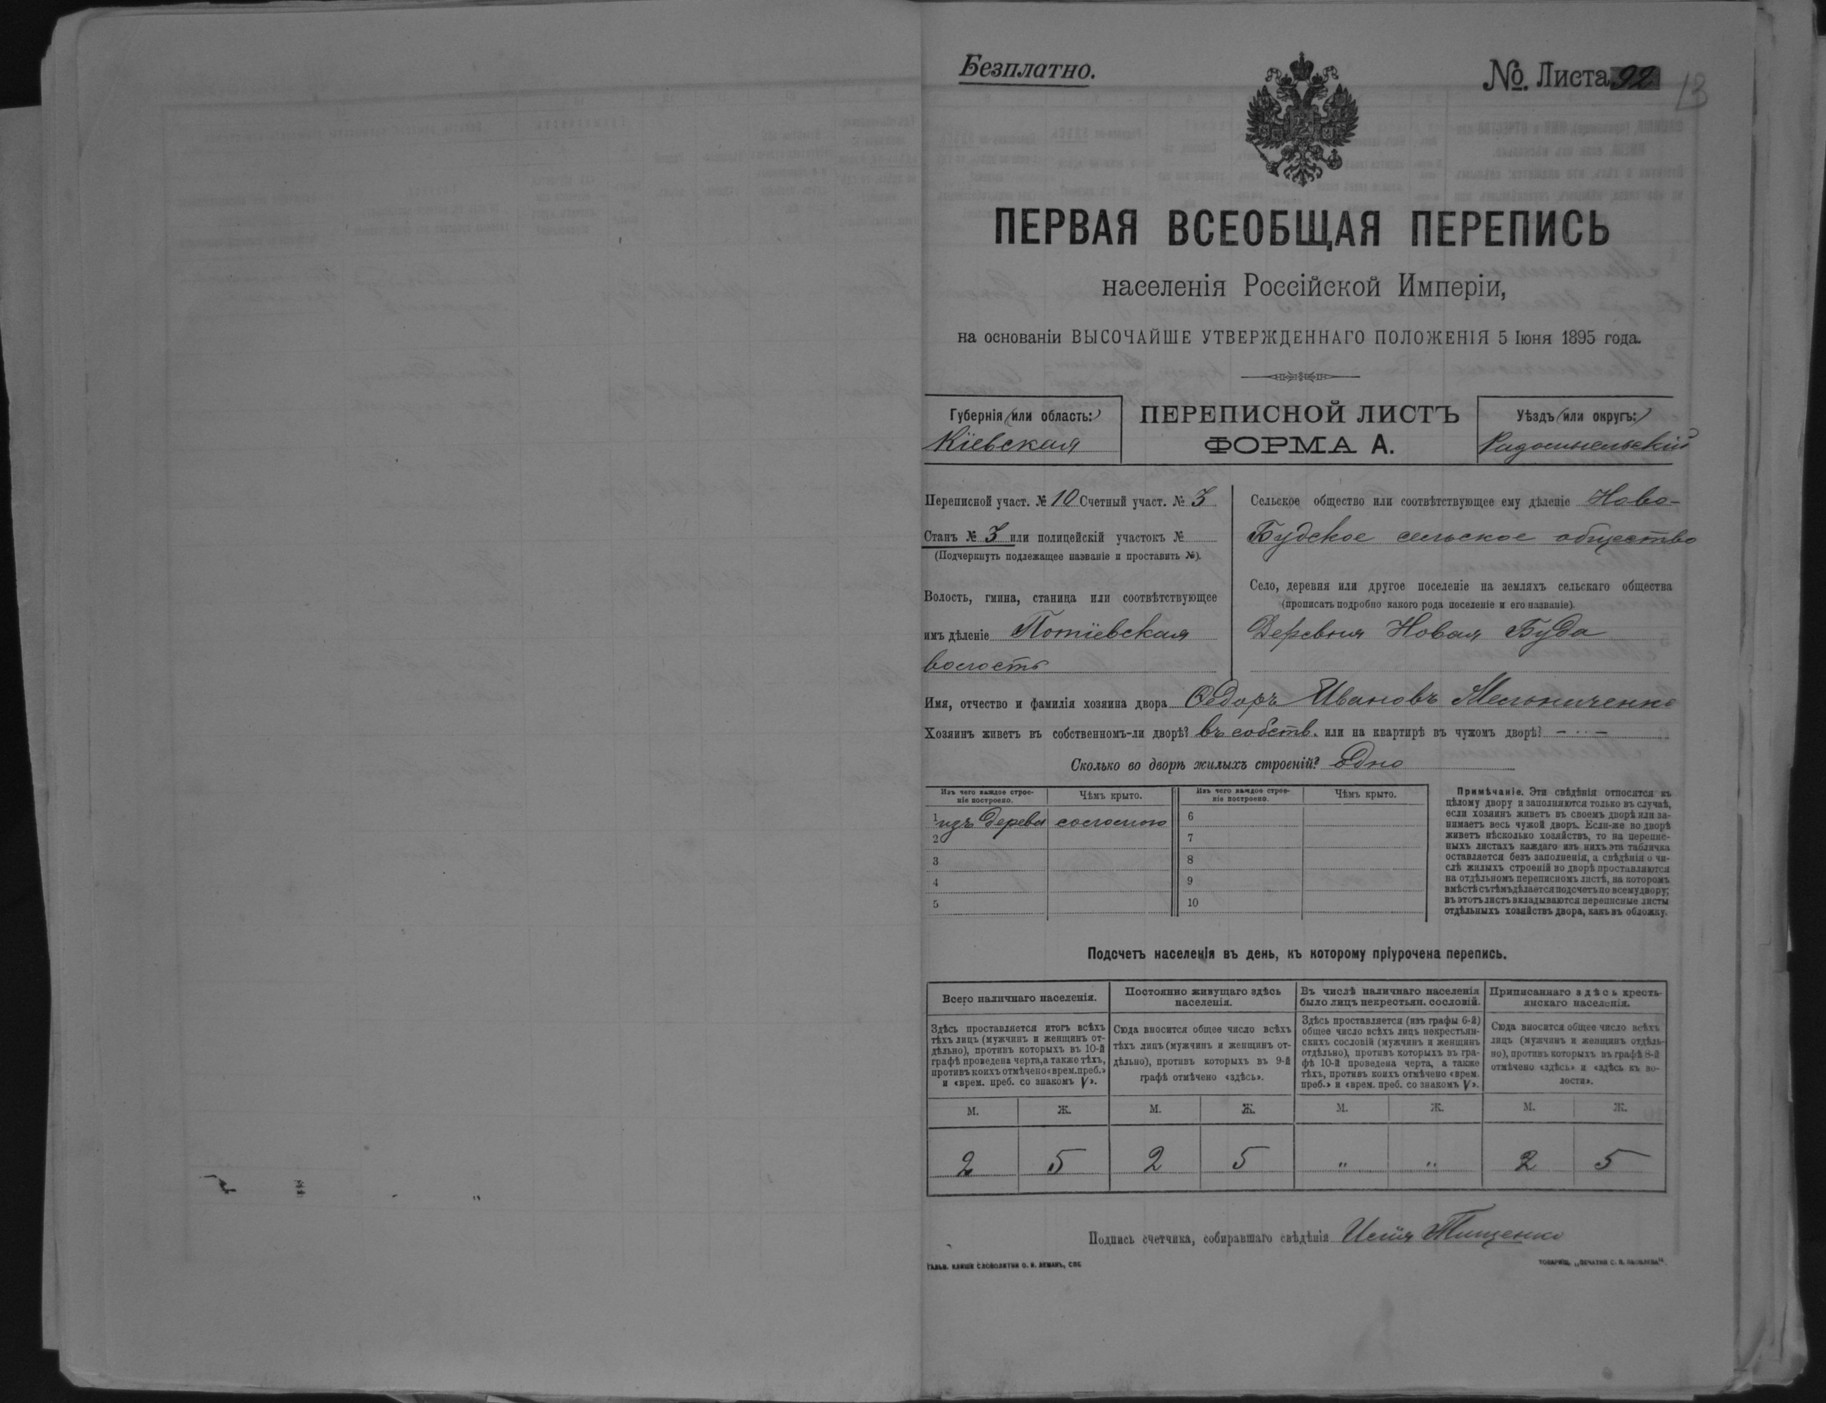 Безплатно.
№. Листа 92
13
ПЕРВАЯ ВСЕОБЩАЯ ПЕРЕПИСЬ
населенія Россійской Имперіи,
на основаніи ВЫСОЧАЙШЕ УТВЕРЖДЕННАГО ПОЛОЖЕНІЯ 5 Іюня 1895 года.
Губернія (или область:)
Кіевская
ПЕРЕПИСНОЙ ЛИСТЪ
ФОРМА А.
Уѣздъ (или округъ:)
Радомысльскій
Переписной участ. № 10 Счетный участ. № 3
Станъ № 3 или полицейскій участокъ №
(Подчеркнуть подлежащее названіе и проставить №).
Волость, гмина, станица или соотвѣтствующее
имъ дѣленіе Потіевская
волость
Сельское общество или соотвѣтствующее ему дѣленіе Ново-
Будское сельское общество
Село, деревня или другое поселеніе на земляхъ сельскаго общества
(прописать подробно какого рода поселеніе и его названіе)
Деревня Новая Буда
Имя, отчество и фамилія хозяина двора Ѳедоръ Ивановъ Мельниченко
Хозяинъ живетъ въ собственномъ-ли дворѣ? въ собств. или на квартирѣ въ чужомъ дворѣ? — ·· —
Сколько во дворѣ жилыхъ строеній? Одно
Изъ чего каждое строе-
ніе построено.
Чѣмъ крыто.
Изъ чего каждое строе-
ніе построено.
Чѣмъ крыто.
1 изъ дерева соломою
2
3
4
5
6
7
8
9
10
Примѣчаніе. Эти свѣдѣнія относятся къ
цѣлому двору и заполняются только въ случаѣ,
если хозяинъ живетъ въ своемъ дворѣ или за-
нимаетъ весь чужой дворъ. Если-же во дворѣ
живетъ нѣсколько хозяйствъ, то на перепис-
ныхъ листахъ каждаго изъ нихъ эта табличка
оставляется безъ заполненія, а свѣдѣнія о чи-
слѣ жилыхъ строеній во дворѣ проставляются
на отдѣльномъ переписномъ листѣ, на которомъ
вмѣстѣ съ тѣмъ дѣлается подсчетъ по всему двору;
въ этотъ листъ вкладываются переписные листы
отдѣльныхъ хозяйствъ двора, какъ въ обложку.
Подсчетъ населенія въ день, къ которому пріурочена перепись.
Всего наличнаго населенія.
Здѣсь проставляется итогъ всѣхъ
тѣхъ лицъ (мужчинъ и женщинъ от-
дѣльно), противъ которыхъ въ 10-й
графѣ проведена черта, а также тѣхъ,
противъ коихъ отмѣчено «врем. преб.»
и «врем. преб. со знакомъ V».
Постоянно живущаго здѣсь
населенія.
Сюда вносится общее число всѣхъ
тѣхъ лицъ (мужчинъ и женщинъ от-
дѣльно), противъ которыхъ въ 9-й
графѣ отмѣчено «здѣсь».
Въ числѣ наличнаго населенія
было лицъ некрестьян. сословій.
Здѣсь проставляется (изъ графы 6-й)
общее число всѣхъ лицъ некрестьян-
скихъ сословій (мужчинъ и женщинъ
отдѣльно), противъ которыхъ въ гра-
фѣ 10-й проведена черта, а также
тѣхъ, противъ коихъ отмѣчено «врем.
преб.» и «врем. преб. со знакомъ V».
Приписаннаго здѣсь кресть-
янскаго населенія.
Сюда вносится общее число всѣхъ
лицъ (мужчинъ и женщинъ отдѣль-
но), противъ которыхъ въ графѣ 8-й
отмѣчено «здѣсь» и «здѣсь къ во-
лости».
М. Ж. М. Ж. М. Ж. М. Ж.
2 5 2 5 " " 2 5
Подпись счетчика, собиравшаго свѣдѣнія Тищенко
ГАЛЬВ. КЛИШЕ СЛОВОЛИТНИ О. И. ЛЕМАНЪ, СПБ
ТОВАРИЩ. „ПЕЧАТНЯ С. П. ЯКОВЛЕВА".